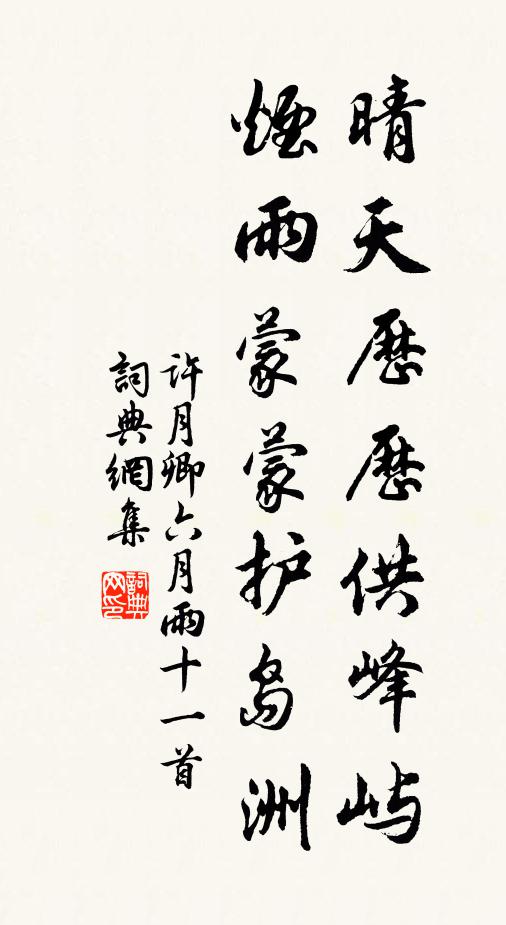 晴天歷歷供峰屿
煙雨蒙蒙护岛洲
許月卿六月雨十一首
詞典網集
詞典網印